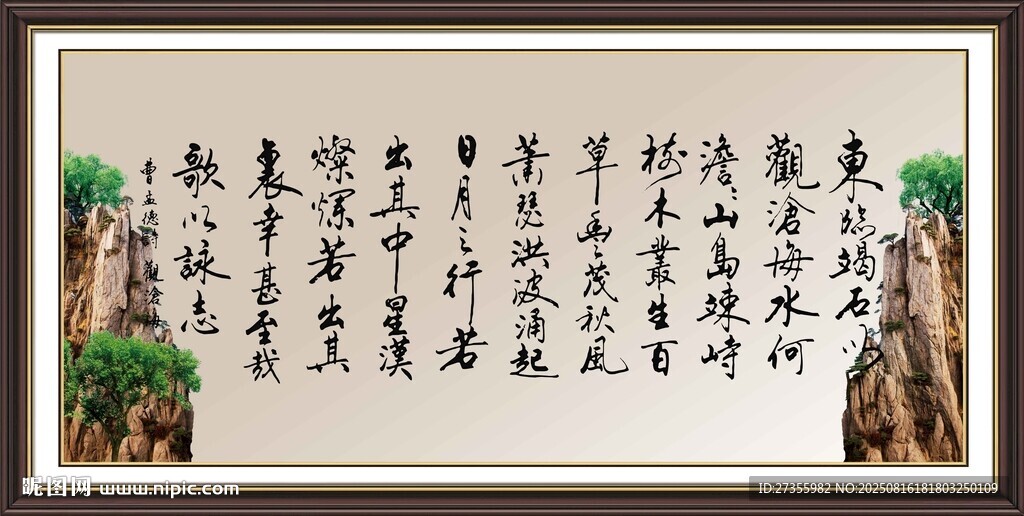 東臨竭石以
觀滄海水何
澹澹山島竦峙
樹木叢生百
草豐茂秋風
蕭瑟洪波涌起
日月之行若
出其中星漢
燦爛若出其
裏幸甚至哉
歌以詠志
曹孟德詩 觀滄海
昵图网 www.nipic.com
ID:27355982 NO:20250816181803250109